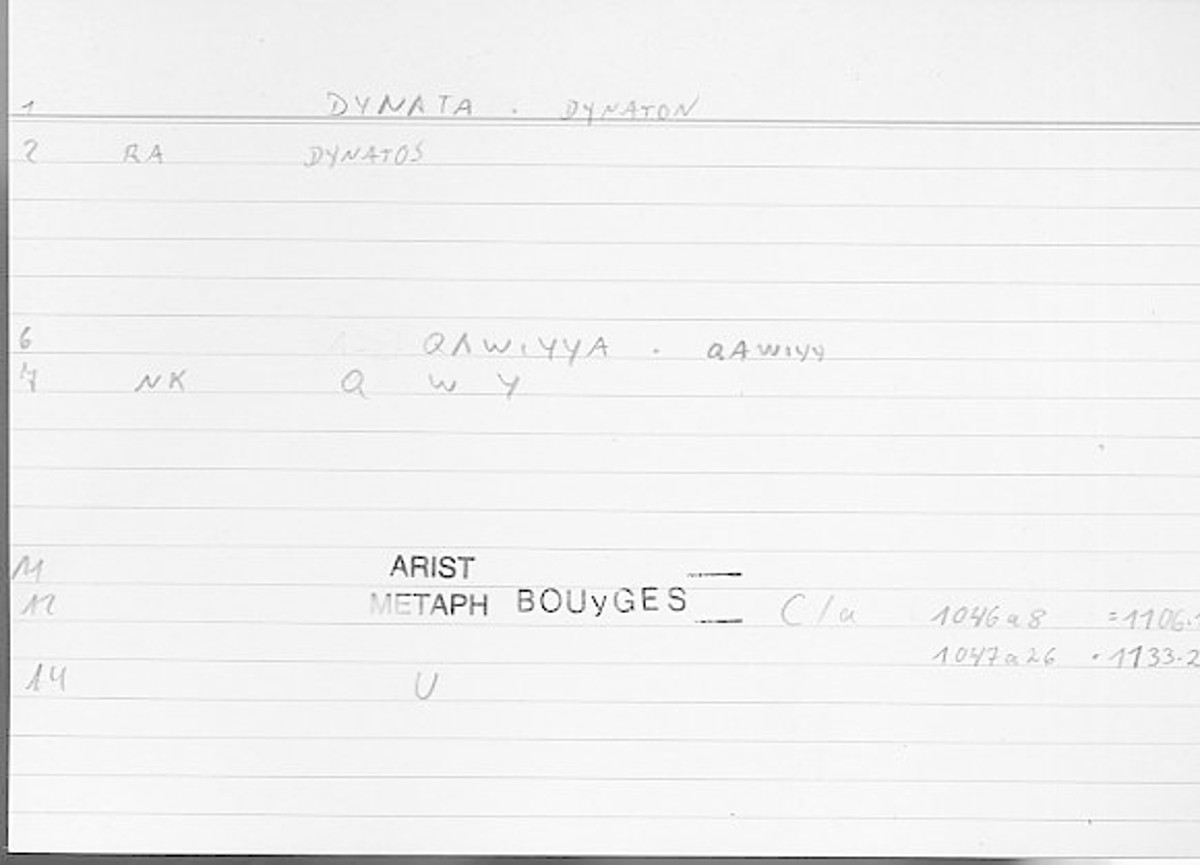 1 DYNATA . DYNATON
2 RA DYNATOS
6 QAWIYYA . QAWIYY
7 NK Q W Y
11 ARIST
12 METAPH BOUyGES C/a 1046a8 =1106.1
1047a26 .1133.2
14 U